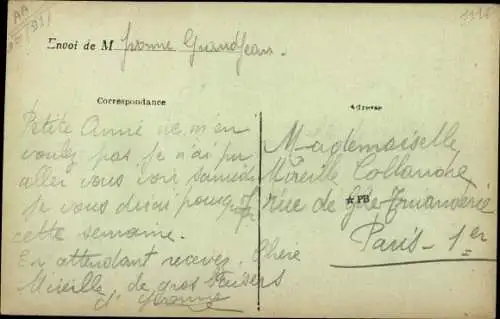 Envoi de M Yvonne Grandjean.
Correspondance
Petite Amie ne m'en
voulez pas je n'ai pu
aller vous voir samedi
Je vous dirai pourquoi
cette semaine.
En attendant recevez, Chère
Mireille, de gros baisers
d'Yvonne
Adresse
Mademoiselle
Mireille Collanche
rue de Gde Truanderie
★ PB
Paris - 1er